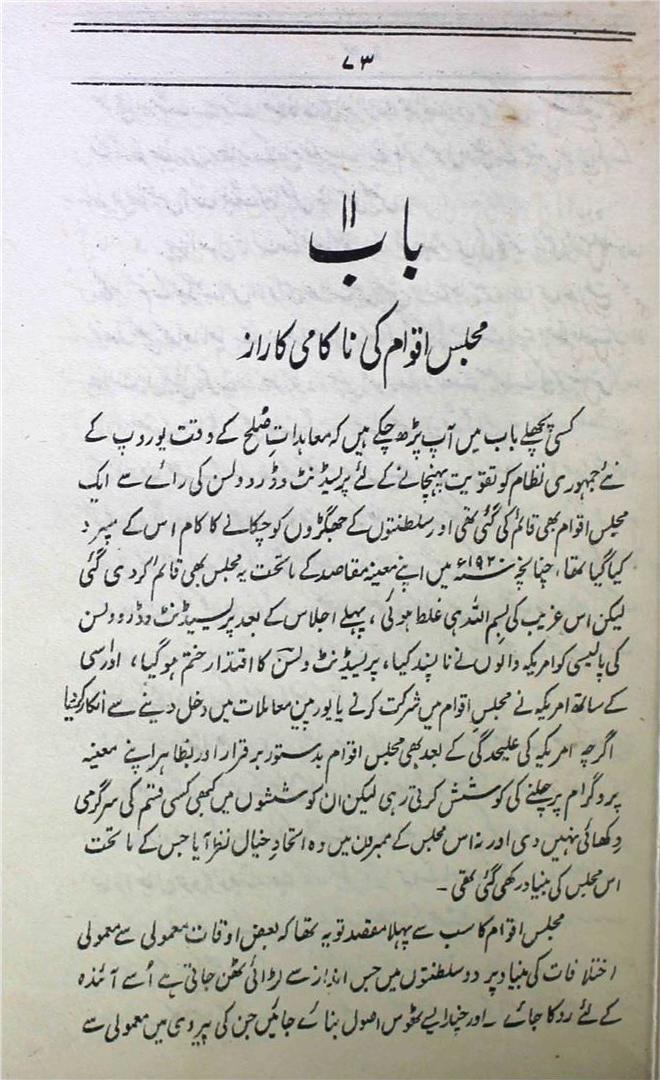 ۷۳
باب ۱۱
مجلس اقوام کی ناکامی کا راز
کسی پچھلے باب میں آپ پڑھ چکے ہیں کہ معاہداتِ صُلح کے وقت یوروپ کے
نئے جمہوری نظام کو تقویت پہنچانے کے لئے پرلیسڈنٹ وڈرو ولسن کی رائے سے ایک
مجلس اقوام بھی قائم کی گئی تھی اور سلطنتوں کے جھگڑوں کو چکانے کا کام اس کے سپرد
کیا گیا تھا، چنانچہ سنہ ۱۹۲۰ء میں اپنے معینہ مقاصد کے ماتحت یہ مجلس بھی قائم کر دی گئی
لیکن اس غریب کی بسم اللہ ہی غلط ہوئی، پہلے اجلاس کے بعد پرلیسڈنٹ وڈرو ولسن
کی پالیسی کو امریکہ والوں نے ناپسند کیا، پرلیسڈنٹ ولسن کا اقتدار ختم ہو گیا، اور اسی
کے ساتھ امریکہ نے مجلس اقوام میں شرکت کرنے یا یورپین معاملات میں دخل دینے سے انکار کر دیا
اگرچہ امریکہ کی علیحدگی کے بعد بھی مجلس اقوام بدستور برقرار اور بظاہر اپنے معینہ
پروگرام پر چلنے کی کوشش کرتی رہی لیکن ان کوششوں میں کبھی کسی قسم کی سرگرمی
دکھائی نہیں دی اور نہ اس مجلس کے ممبروں میں وہ اتحادِ خیال نظر آیا جس کے ماتحت
اس مجلس کی بنیاد رکھی گئی تھی۔
مجلس اقوام کا سب سے پہلا مقصد تو یہ تھا کہ بعض اوقات معمولی سے معمولی
اختلافات کی بنیاد پر دو سلطنتوں میں جس انداز سے لڑائی ٹھن جاتی ہے اُسے آئندہ
کے لئے روکا جائے۔ اور چند ایسے ٹھوس اصول بنائے جائیں جن کی پیروی میں معمولی سے